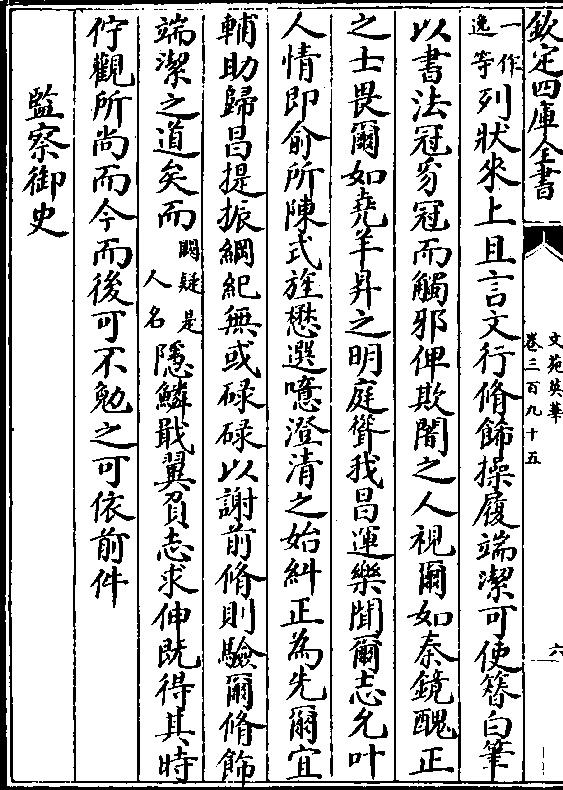 欽定四庫全書
文苑英華
卷三百九十五
六
一作逸等列狀來上且言文行脩飾操履端潔可使簪白筆
以書法冠豸冠而觸邪俾欺闇之人視爾如秦鏡醜正
之士畏爾如堯羊昇之明庭聳我昌運樂聞爾志允叶
人情即俞所陳式旌懋選噫澄清之始糾正為先爾宜
輔助歸昌提振綱紀無或碌碌以謝前脩則驗爾脩飾
端潔之道矣而闕疑是人名隱鱗戢翼負志求伸既得其時
佇觀所尚而今而後可不勉之可依前件
監察御史